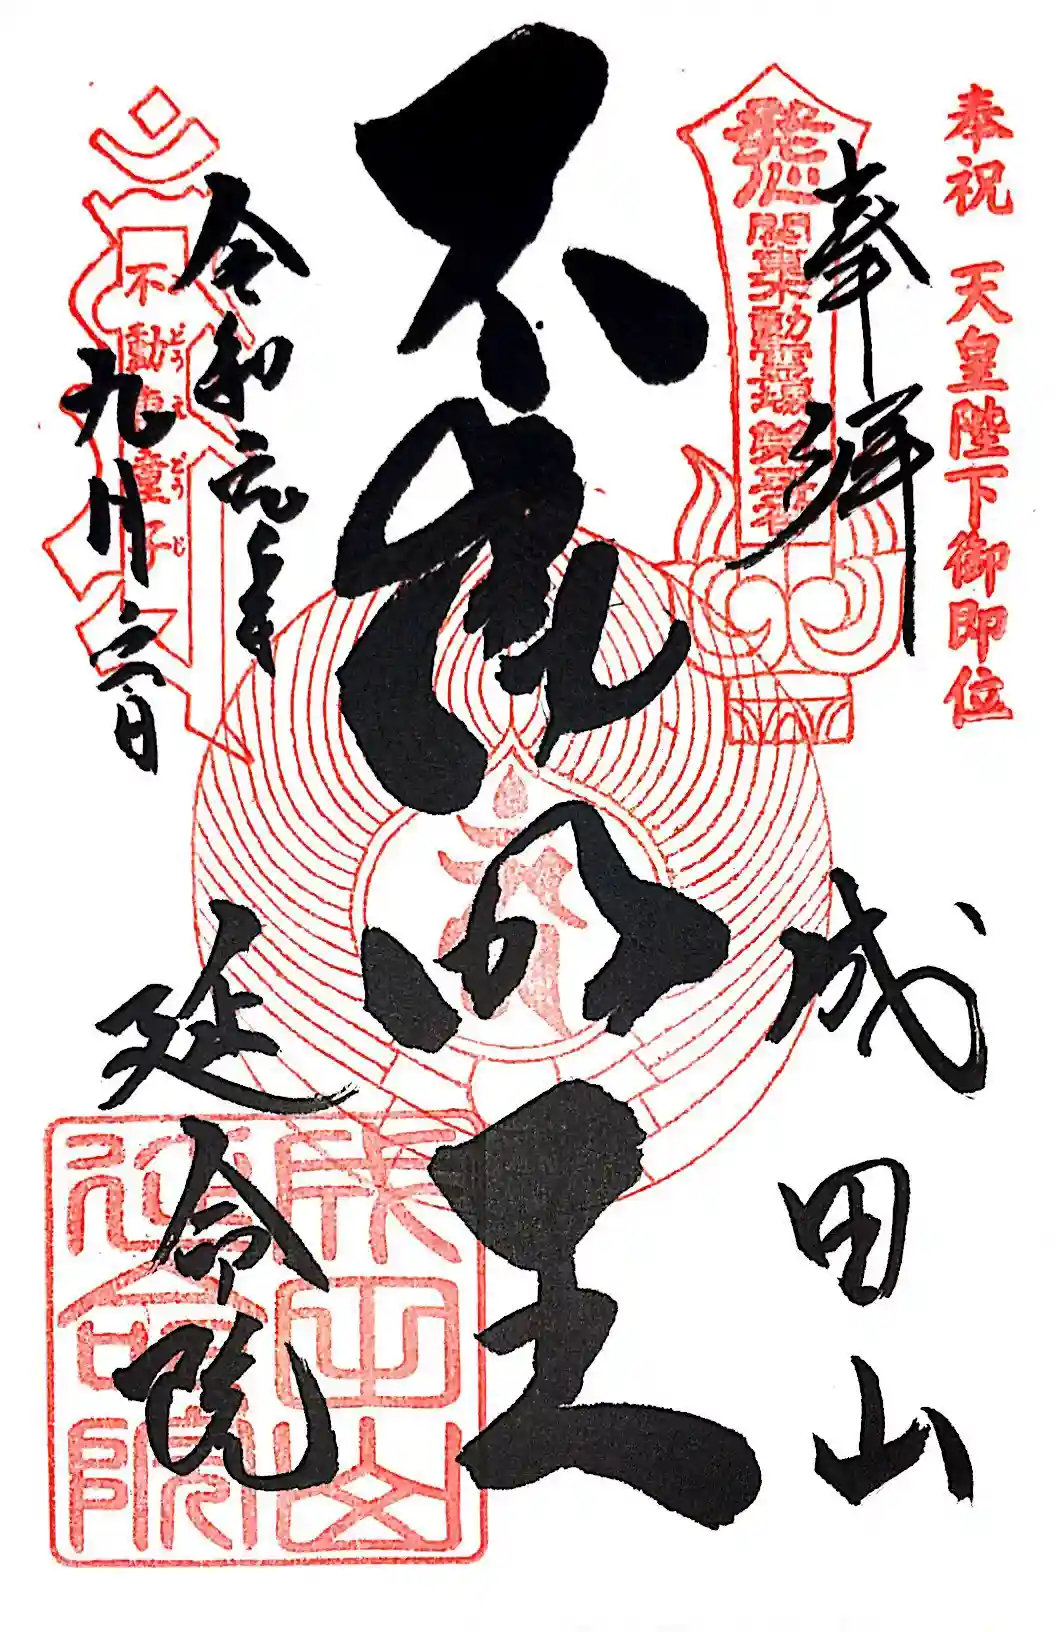 奉祝 天皇陛下御即位
奉拝
発心 関東三十六不動霊場
成田山
不動明王
令和元年
九月
日
不動慧童子
どうえどうじ
延命院
成田山
延命院